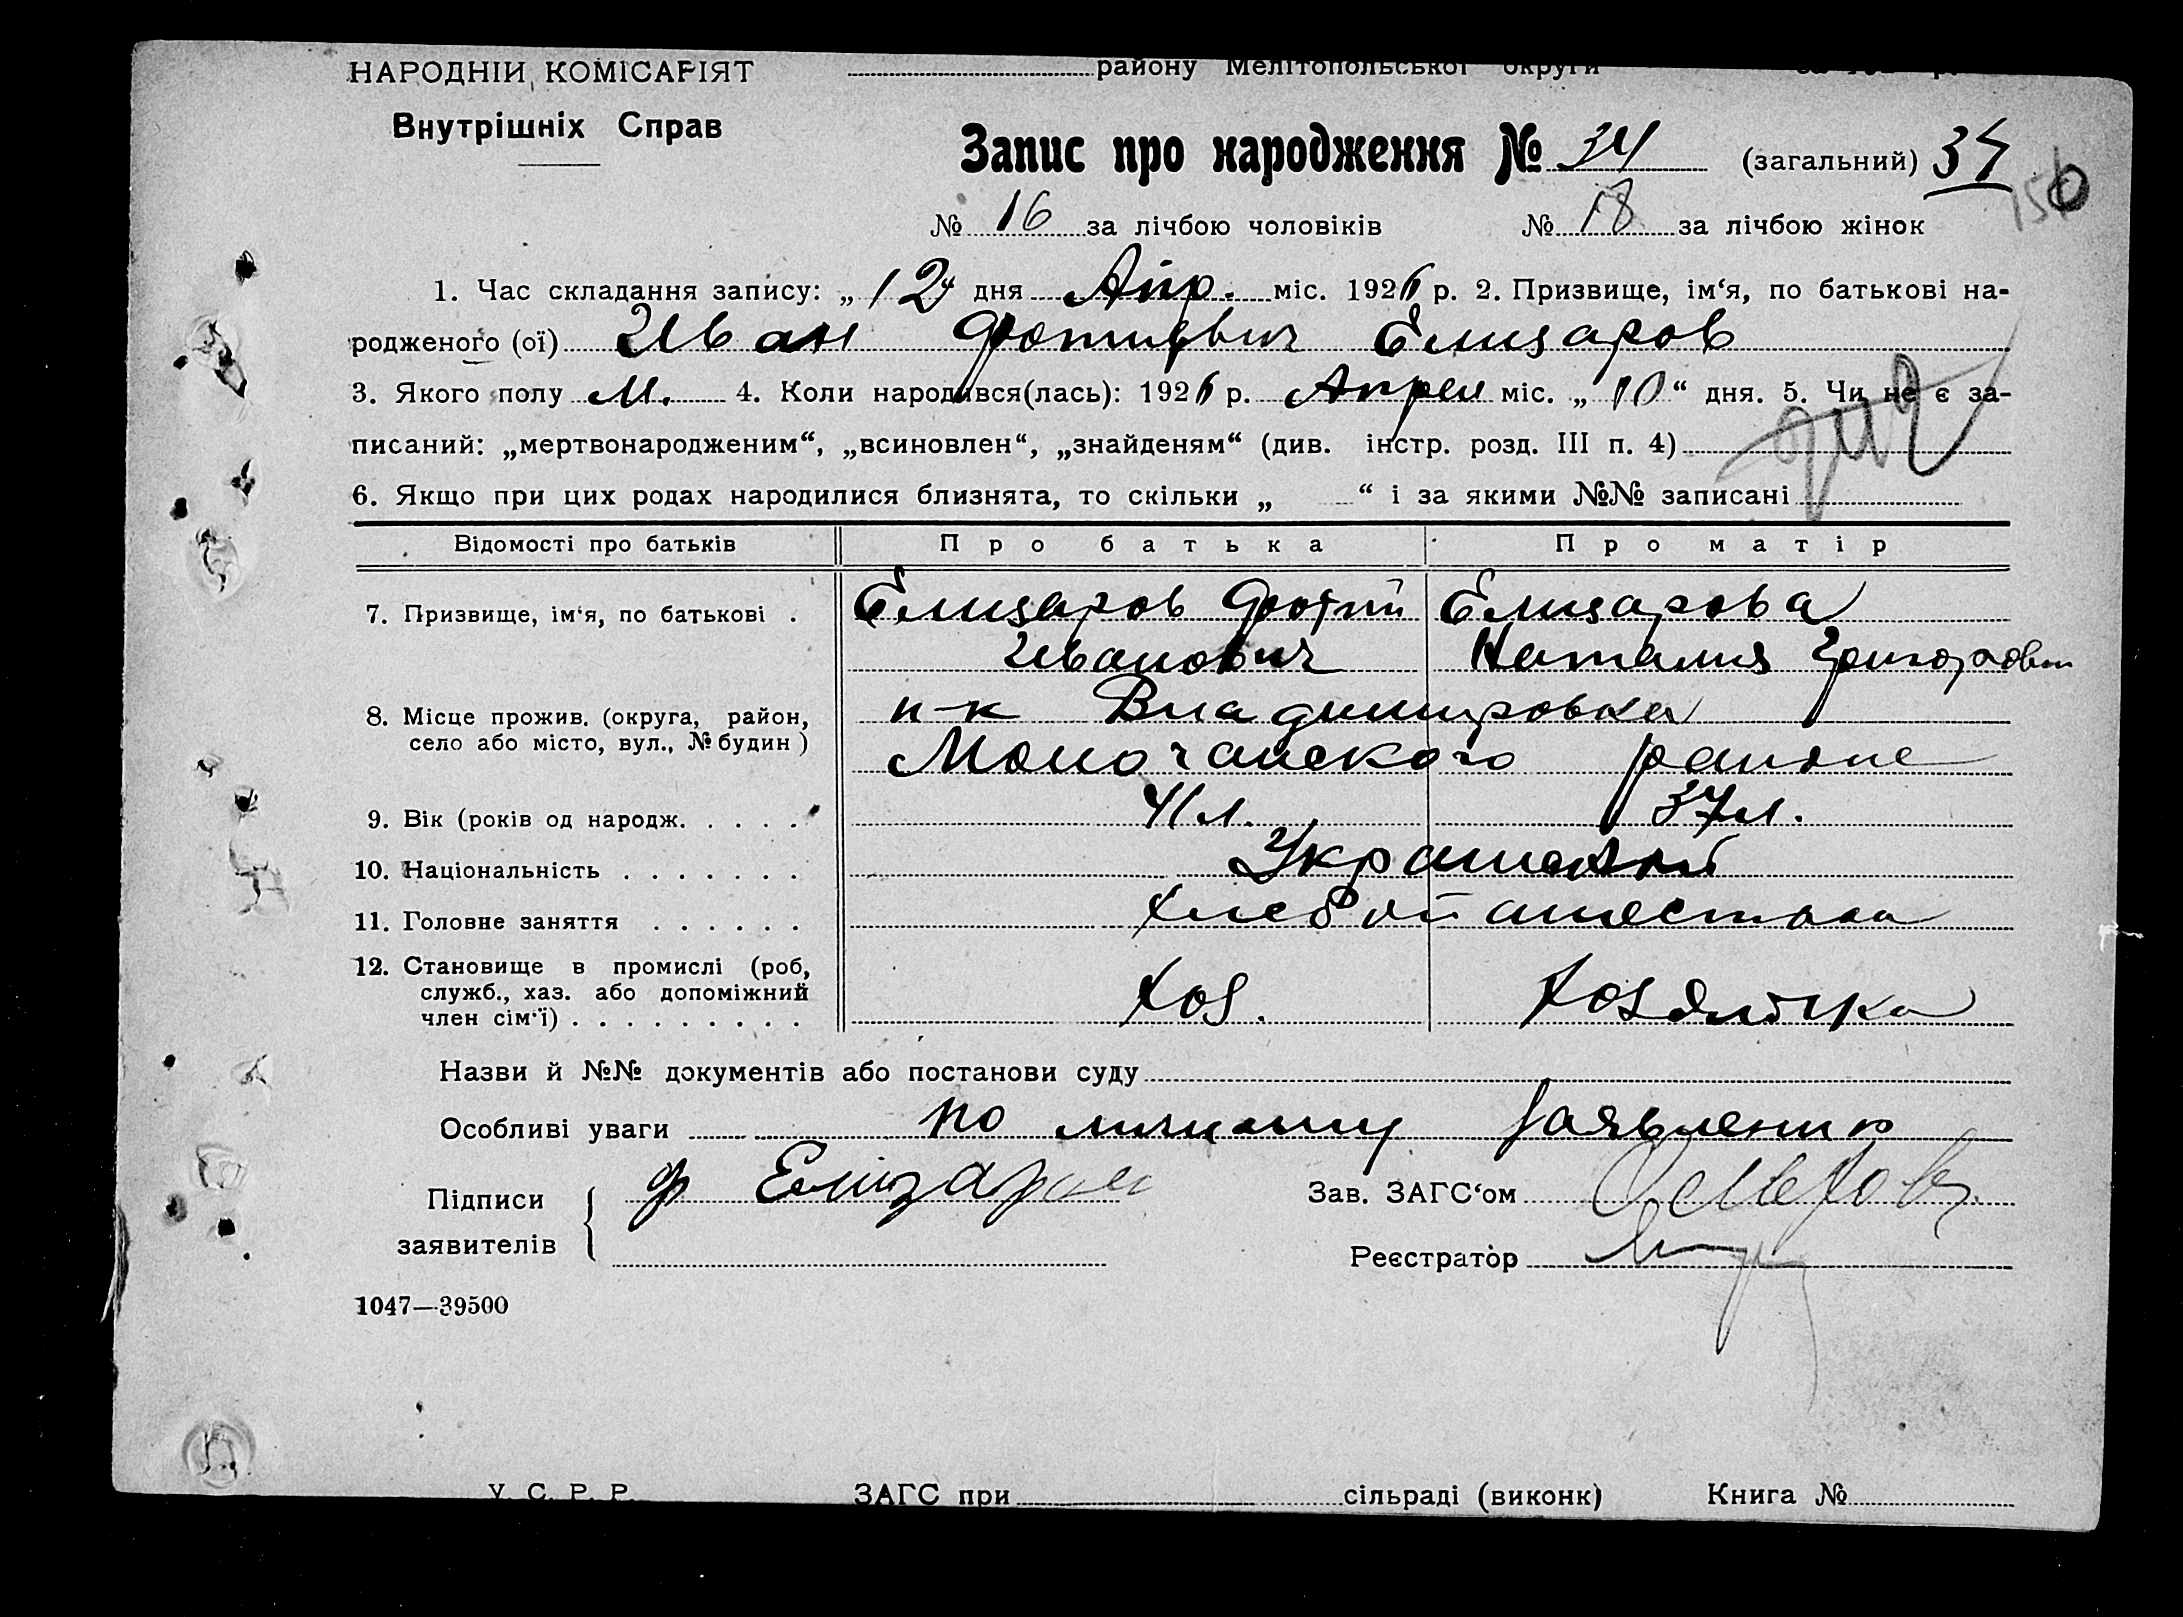 НАРОДНІЙ КОМІСАРІЯТ
району Мелітопольської округи
Внутрішніх Справ
Запис про народження № 34 (загальний) 34
№ 16 за лічбою чоловіків № 18 за лічбою жінок
1. Час складання запису: „ 12 дня Апр. міс. 1926 р. 2. Призвище, ім‘я, по батькові на-
родженого (ої) Иван Фотиевич Елизаров
3. Якого полу М. 4. Коли народився(лась): 1926 р. Апрел міс. „ 10 “ дня. 5. Чи не є за-
писаний: „мертвонародженим“, „всиновлен“, „знайденям“ (див. інстр. розд. III п. 4)
6. Якщо при цих родах народилися близнята, то скільки „ “ і за якими №№ записані
Відомості про батьків Про батька Про матір
7. Призвище, ім‘я, по батькові . Елизаров Фотий Елизарова
Иванович Наталия Григоровн
8. Місце прожив. (округа, район, н-к Владимировка
село або місто, вул., № будин) Молочанского района
9. Вік (років од народж. . . . . 41 л. 37 л.
10. Національність . . . . . . . Украинский
11. Головне заняття . . . . . . Хлебопашество
12. Становище в промислі (роб, служб., хаз. або допоміжний член сім‘ї) . . . . . . . . . Хоз. Хозяйка
Назви й №№ документів або постанови суду
Особливі уваги по личному заявлению
Підписи заявителів Ф Елизаров
Зав. ЗАГС‘ом
Реєстратор
1047—39500
У. С. Р. Р. ЗАГС при сільраді (виконк) Книга №